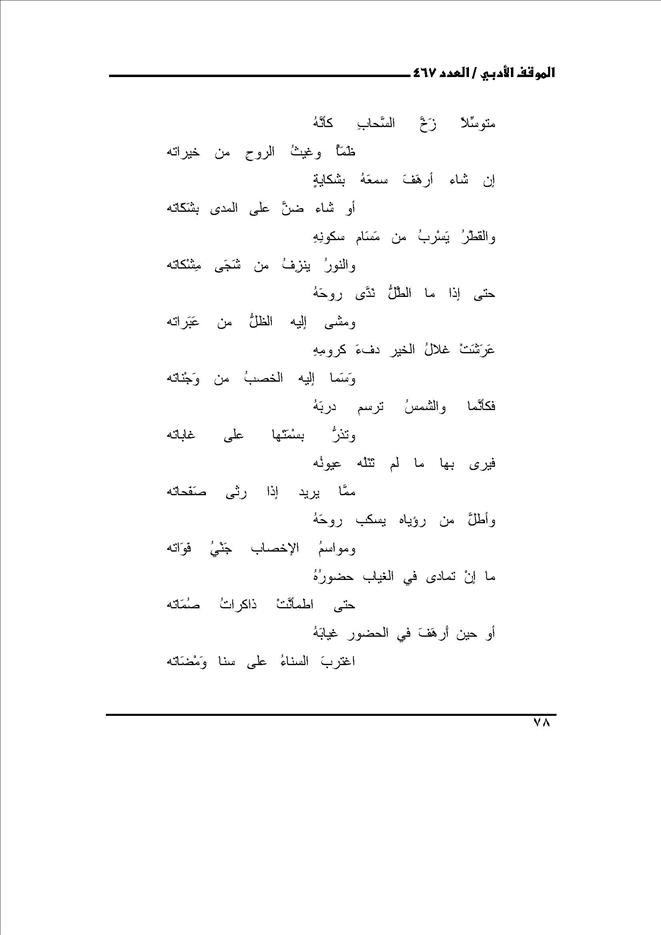 الموقف الأدبي / العدد ٤٦٧
متوسِّلاً زَخَّ السَّحابِ كأنَّهُ
ظَمَأٌ وغيثُ الروح من خيراته
إن شاء أرهَفَ سمعَهُ بشكايةٍ
أو شاء ضنَّ على المدى بشَكاته
والقطْرُ يَسْربُ من مَسَام سكونِهِ
والنورُ ينزفُ من شَجَى مِشْكاته
حتى إذا ما الطَّلُّ نَدَّى روحَهُ
ومشى إليه الظلُّ من عَبَراته
عَرَشَتْ غلالُ الخير دفءَ كرومِهِ
وَسَما إليه الخصبُ من وَجْناته
فكأنَّما والشمسُ ترسم دربَهُ
وتذرُّ بسْمَتَها على غاباته
فيرى بها ما لم تنَله عيونُه
ممَّا يريد إذا رثى صَفحاته
وأطلَّ من رؤياه يسكب روحَهُ
ومواسمُ الإخصاب جَنْيُ فوَاته
ما إنْ تمادى في الغياب حضورُهُ
حتى اطمأنَّتْ ذاكراتُ صُمَاته
أو حين أرهَفَ في الحضور غيابَهُ
اغتربَ السناءُ على سنا وَمْضَاته
٧٨